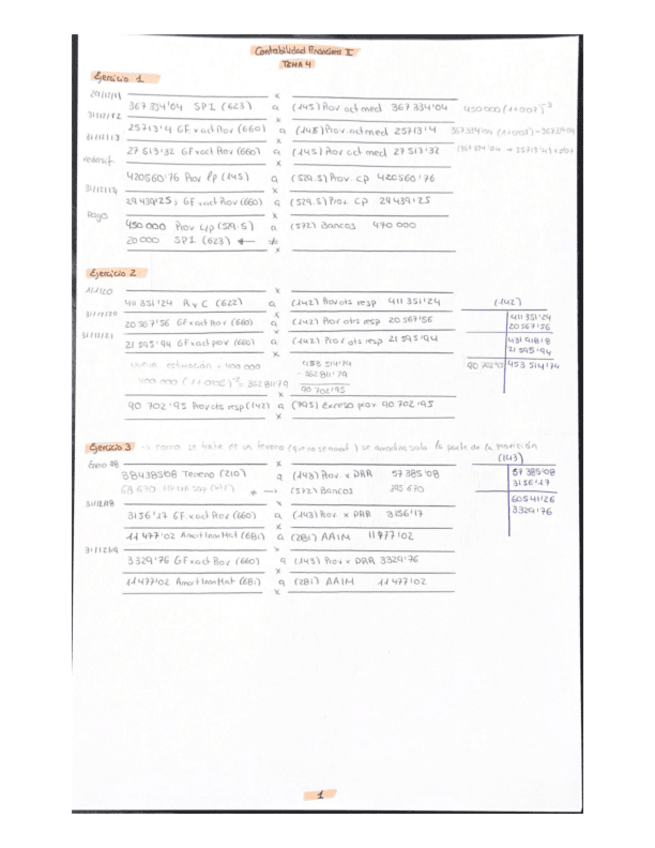 Contabilidad Financiera II
TEMA 4
Ejercicio 1
29/12/11
367 334'04 SPI (623) a (145) Prov act med 367 334'04 450 000 (1+0'07)^-3
31/12/12
25713'4 GF x act Prov (660) a (145) Prov. act med 25713'4
31/12/13
27 513'32 GF x act Prov (660) a (145) Prov act med 27 513'32
reclasif.
420560'76 Prov lp (145) a (529.5) Prov. cp 420560'76
31/12/14
29 439'25 GF x act Prov (660) a (529.5) Prov. cp 29 439'25
Pago
450 000 Prov c/p (529.5) a (572) Bancos 470 000
20 000 SPI (623)
Ejercicio 2
1/1/20
411 351'24 R y C (622) a (142) Prov ots resp 411 351'24
31/12/20
20 567'56 GF x act Prov (660) a (142) Prov otrs resp 20 567'56
31/12/21
21 595'94 GF x act prov (660) a (142) Prov ots resp 21 595'94
(142)
411 351'24
20 567'56
431 918'8
21 595'94
90 702'95 453 514'74
nueva estimación = 400 000
453 514'74
- 362 811'79
90 702'95
90 702'95 Prov ots resp (142) a (795) Exceso prov 90 702'95
Ejercicio 3 → como se trata de un terreno (que no se amort) se amortiza solo la parte de la provisión
Enero 08
a (143) Prov. x DRR 57 385'08
a (572) Bancos
31/12/08
3156'17 GF. x act Prov (660) a (143) Prov. x DRR 3156'17
11 477'02 Amort Inm Mat (681) a (281) AAIM 11 477'02
31/12/09
3329'76 GF x act Prov (660) a (143) Prov x DRR 3329'76
11 477'02 Amort Inm Mat (681) a (281) AAIM 11 477'02
(143)
57 385'08
3156'17
60541'26
3329'76
1